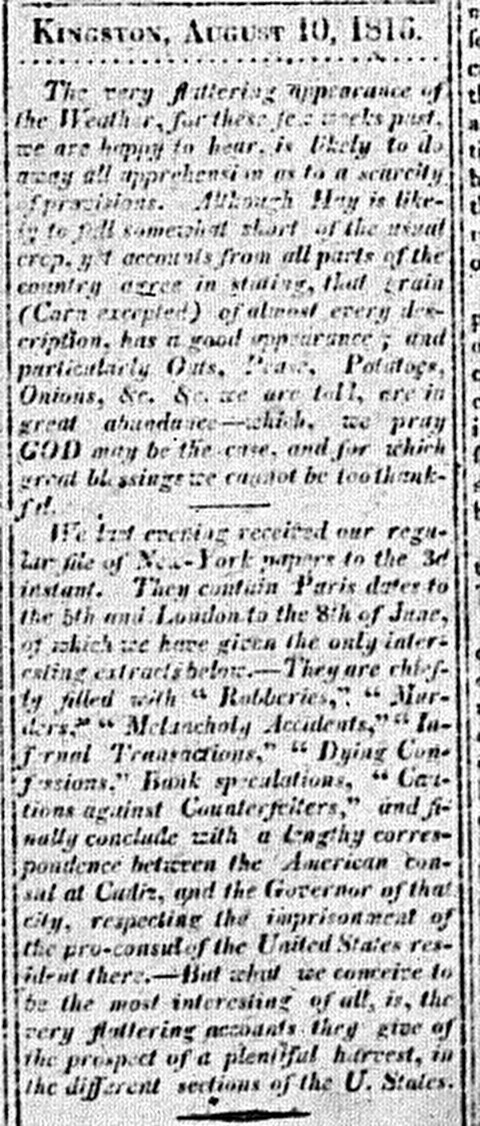 KINGSTON, AUGUST 10, 1816.
The very flattering appearance of
the Weather, for these few weeks past,
we are happy to hear, is likely to do
away all apprehension as to a scarcity
of provisions. Although Hay is like-
ly to fall somewhat short of the usual
crop, yet accounts from all parts of the
country agree in stating, that grain
(Corn excepted) of almost every des-
cription, has a good appearance; and
particularly Oats, Pease, Potatoes,
Onions, &c. &c. we are told, are in
great abundance—which, we pray
GOD may be the case, and for which
great blessings we cannot be too thank-
ful.
We last evening received our regu-
lar file of New-York papers to the 3d
instant. They contain Paris dates to
the 5th and London to the 8th of June,
of which we have given the only inter-
esting extracts below.—They are chief-
ly filled with “Robberies,” “Mur-
ders,” “Melancholy Accidents,” “In-
fernal Transactions,” “Dying Con-
fessions,” Bank speculations, “Cau-
tions against Counterfeiters,” and fi-
nally conclude with a lengthy corres-
pondence between the American con-
sul at Cadiz, and the Governor of that
city, respecting the imprisonment of
the pro-consul of the United States res-
ident there.—But what we conceive to
be the most interesting of all, is, the
very flattering accounts they give of
the prospect of a plentiful harvest, in
the different sections of the U. States.